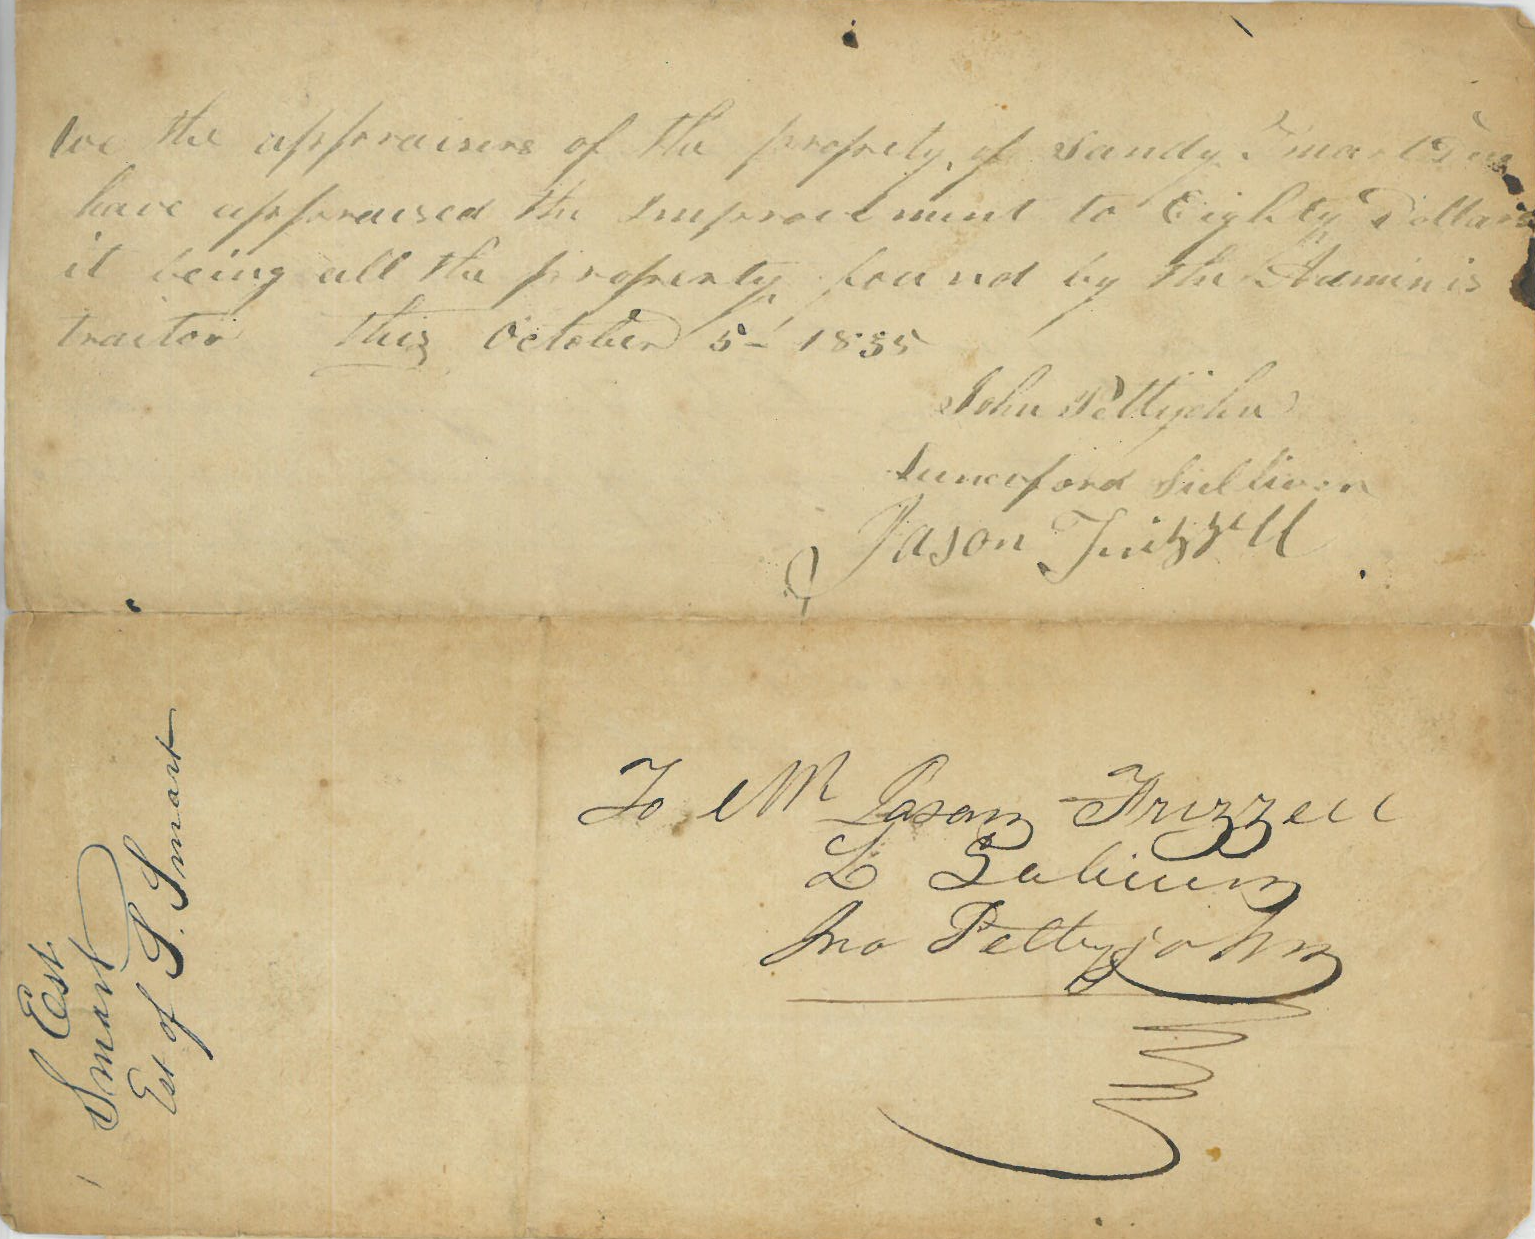 We the appraisers of the proprety of Sandy Smart
have appraised the Improvement to Eighty Dollars
it being all the property found by the Adminis
traitor this October 5th 1835
John Pettijohn
Lunceford Sulliven
Jason Frizzell
To Mr Jason Frizzell
L Sulivan
Jno Pettyjohn
Est
Smart
Est of S. Smart